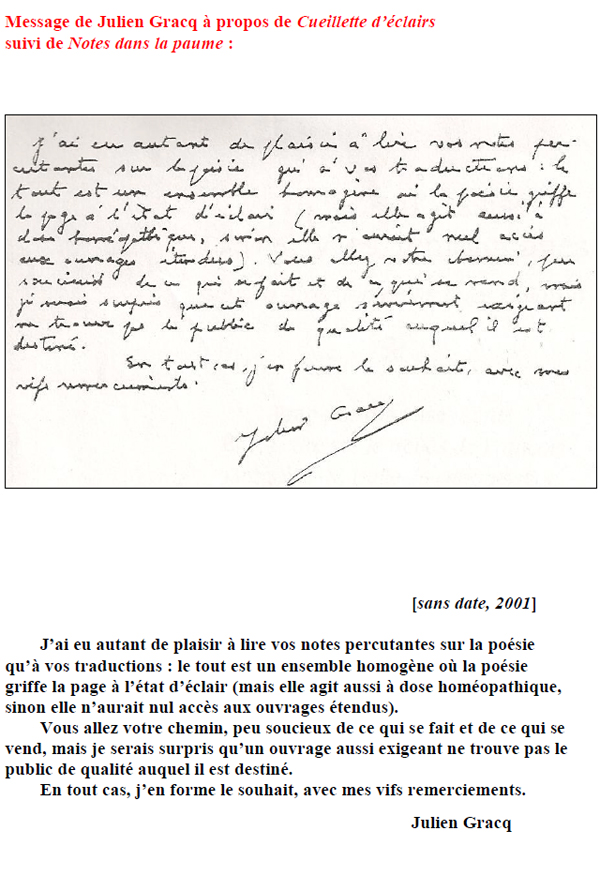 Message de Julien Gracq à propos de Cueillette d’éclairs
suivi de Notes dans la paume :
J'ai eu autant de plaisir à lire vos notes per-
cutantes sur la poésie qu'à vos traductions : le
tout est un ensemble homogène où la poésie griffe
la page à l'état d'éclair (mais elle agit aussi à
dose homéopathique, sinon elle n'aurait nul accès
aux ouvrages étendus). Vous allez votre chemin, peu
soucieux de ce qui se fait et de ce qui se vend, mais
je serais surpris que cet ouvrage exigeant
ne trouve pas le public de qualité auquel il est
destiné.
En tout cas, j'en forme le souhait, avec mes
vifs remerciements.
Julien Gracq
[sans date, 2001]
J’ai eu autant de plaisir à lire vos notes percutantes sur la poésie
qu’à vos traductions : le tout est un ensemble homogène où la poésie
griffe la page à l’état d’éclair (mais elle agit aussi à dose homéopathique,
sinon elle n’aurait nul accès aux ouvrages étendus).
Vous allez votre chemin, peu soucieux de ce qui se fait et de ce qui se
vend, mais je serais surpris qu’un ouvrage aussi exigeant ne trouve pas le
public de qualité auquel il est destiné.
En tout cas, j’en forme le souhait, avec mes vifs remerciements.
Julien Gracq